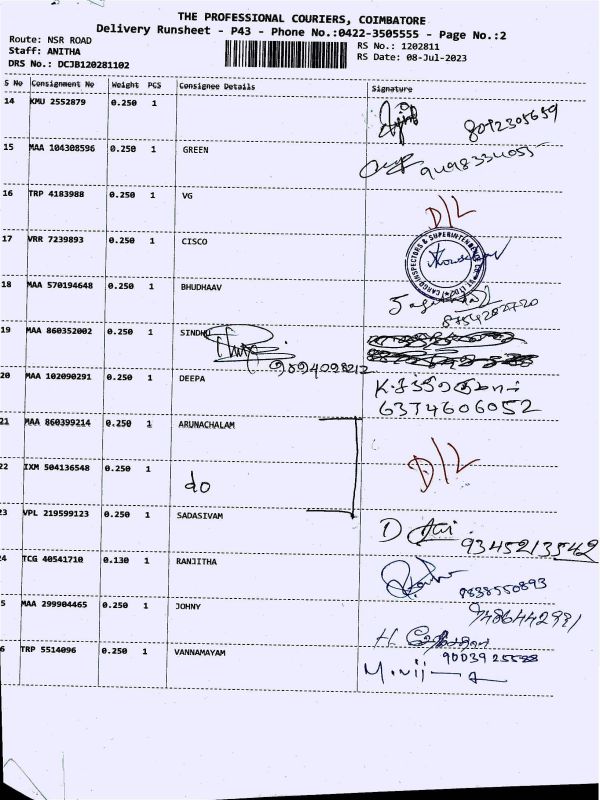 THE PROFESSIONAL COURIERS, COIMBATORE
Delivery Runsheet - P43 - Phone No.:0422-3505555 - Page No.:2
Route: NSR ROAD
Staff: ANITHA
DRS No.: DCJB120281102
RS No.: 1202811
RS Date: 08-Jul-2023
S No Consignment No Weight PCS Consignee Details Signature
14 KMU 2552879 0.250 1 8012305659
15 MAA 104308596 0.250 1 GREEN
16 TRP 4183988 0.250 1 VG D/L
17 VRR 7239893 0.250 1 CISCO
CARGO INSPECTORS & SUPERINTENDENCE
18 MAA 570194648 0.250 1 BHUDHAAV
19 MAA 860352002 0.250 1 SINDHU
9894098212
20 MAA 102090291 0.250 1 DEEPA
6374606052
21 MAA 860399214 0.250 1 ARUNACHALAM D/L
22 IXM 504136548 0.250 1 do
23 VPL 219599123 0.250 1 SADASIVAM D
9345213542
24 TCG 40541710 0.130 1 RANJITHA
9838550893
5 MAA 299904465 0.250 1 JOHNY 9486442991
H.
6 TRP 5514096 0.250 1 VANNAMAYAM 9003925588